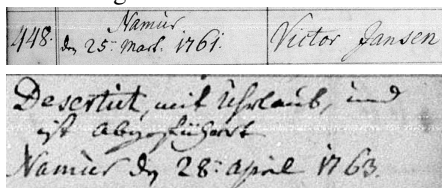 448. Namur
den 25ten Mart. 1761. Victor Jansen
Desertirt, mit Uhrlaub, und
ist abgeführt
Namur den 28t april 1763.